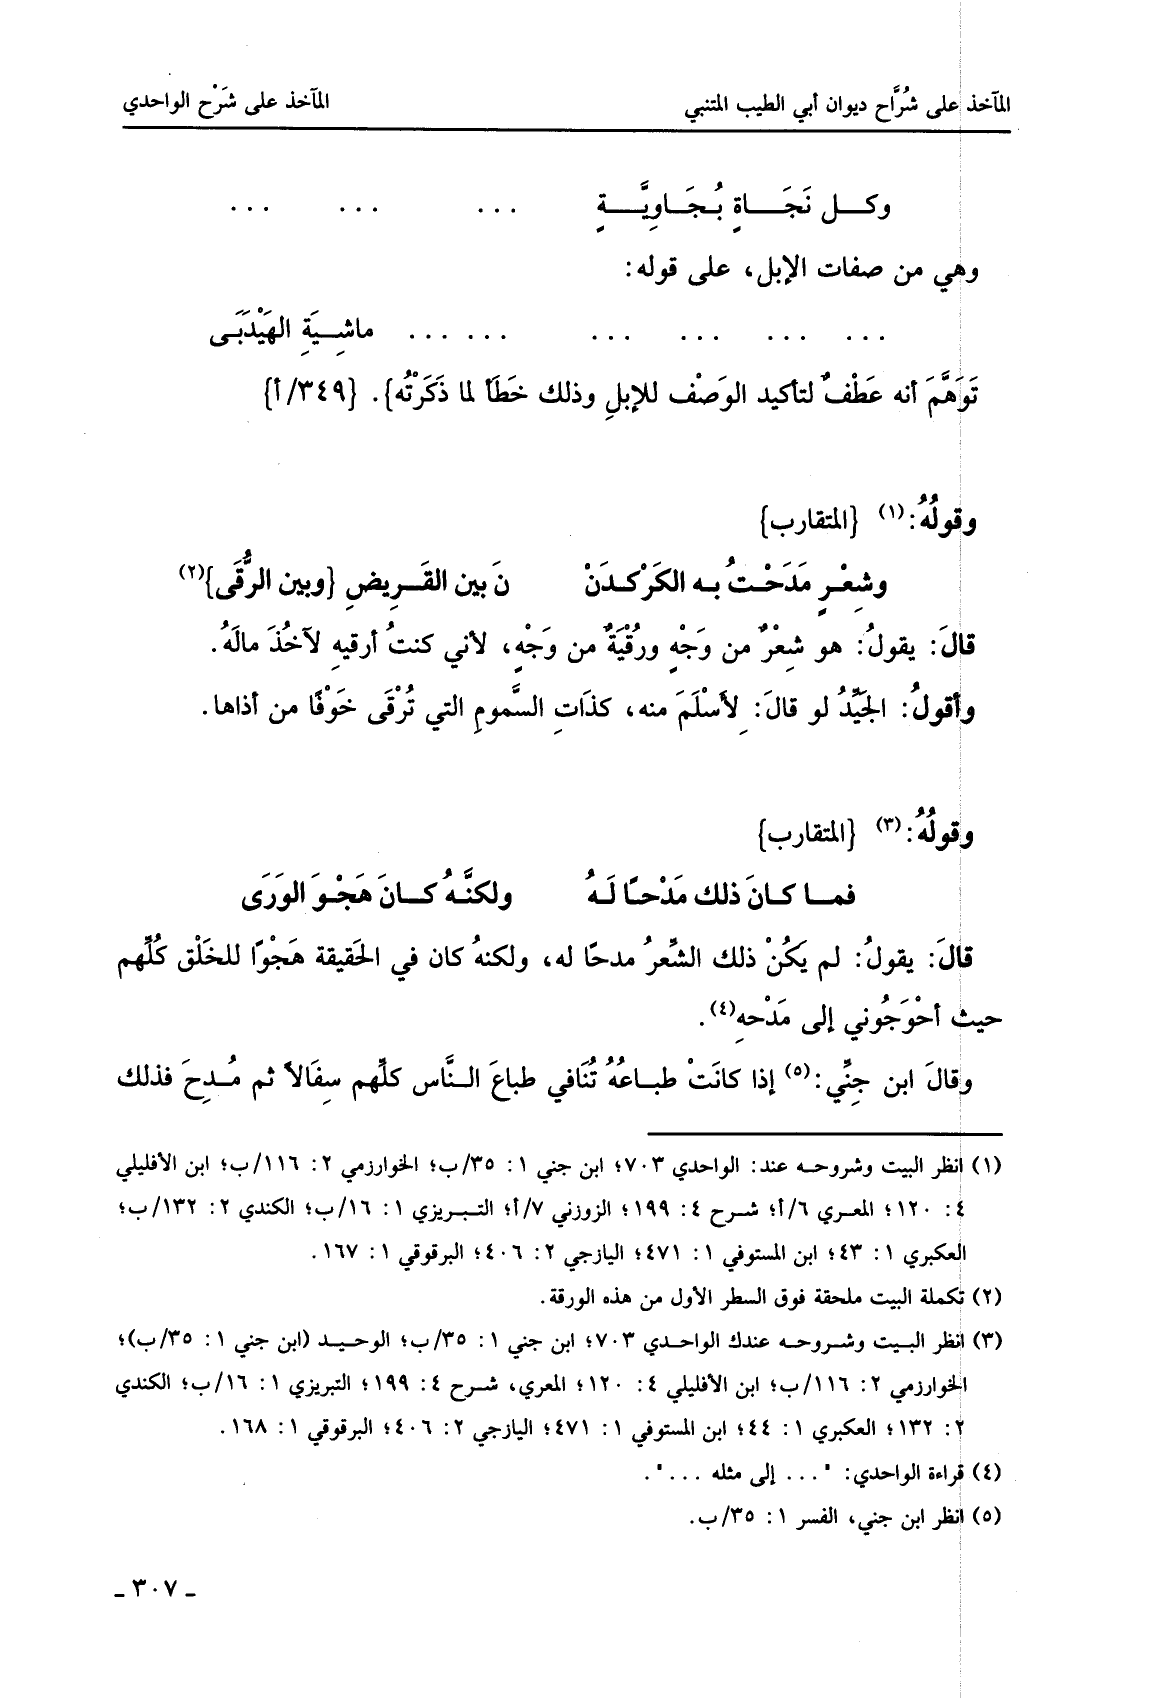 المآخذ على شُرَّاح ديوان أبي الطيب المتنبي المآخذ على شَرْح الواحدي
وكـــل نَجَـــاةٍ بُجَـاوِيَّـــةٍ ... ... ...
وهي من صفات الإبل، على قوله:
... ... ... ... ... ماشِـيَةِ الهَيْدَبَـى
تَوَهَّمَ أنه عَطْفٌ لتأكيد الوَصْف للإبلِ وذلك خَطَأ لما ذَكَرْتُه}. {٣٤٩/أ}
وقولُهُ:(١) {المتقارب}
وشِعْـرٍ مَدَحْـتُ بـه الكَرْكـدَنْ نَ بين القَـرِيضِ {وبين الرُّقَى}(٢)
قالَ: يقولُ: هو شِعْرٌ من وَجْهٍ ورُقْيَةٌ من وَجْهٍ، لأني كنتُ أرقيهِ لآخُذَ مالَهُ.
وأقولُ: الجَيِّدُ لو قالَ: لِأَسْلَمَ منه، كذَاتِ السَّمومِ التي تُرْقَى خَوْفًا من أذاها.
وقولُهُ:(٣) {المتقارب}
فمـــا كـانَ ذلك مَدْحًـا لَـهُ ولكنَّـهُ كـــانَ هَجْـوَ الوَرَى
قالَ: يقولُ: لم يَكُنْ ذلك الشِّعرُ مدحًا له، ولكنهُ كان في الحَقيقة هَجْوًا للخَلْق كُلِّهم
حيث أحْوَجُوني إلى مَدْحهِ(٤).
وقالَ ابن جِنِّي:(٥) إذا كانَتْ طبـاعُهُ تُنَافي طباعَ النَّاس كلِّهم سِفَالاً ثم مُـدِحَ فذلك
(١) انظر البيت وشروحـه عند: الواحدي ٧٠٣؛ ابن جني ١: ٣٥/ب؛ الخوارزمي ٢: ١١٦/ب؛ ابن الأفليلي
٤: ١٢٠؛ المعـري ٦/أ؛ شـرح ٤: ١٩٩؛ الزوزني ٧/أ؛ التـبـريزي ١: ١٦/ب؛ الكندي ٢: ١٣٢/ب؛
العكبري ١: ٤٣؛ ابن المستوفي ١: ٤٧١؛ اليازجي ٢: ٤٠٦؛ البرقوقي ١: ١٦٧.
(٢) تكملة البيت ملحقة فوق السطر الأول من هذه الورقة.
(٣) انظر البـيت وشـروحـه عندك الواحـدي ٧٠٣؛ ابن جني ١: ٣٥/ب؛ الوحـيـد (ابن جني ١: ٣٥/ب)؛
الخوارزمي ٢: ١١٦/ب؛ ابن الأفليلي ٤: ١٢٠؛ المعري، شـرح ٤: ١٩٩؛ التبريزي ١: ١٦/ب؛ الكندي
٢: ١٣٢؛ العكبري ١: ٤٤؛ ابن المستوفي ١: ٤٧١؛ اليازجي ٢: ٤٠٦؛ البرقوقي ١: ١٦٨.
(٤) قراءة الواحدي: "... إلى مثله ...".
(٥) انظر ابن جني، الفسر ١: ٣٥/ب.
ـ ٣٠٧ ـ